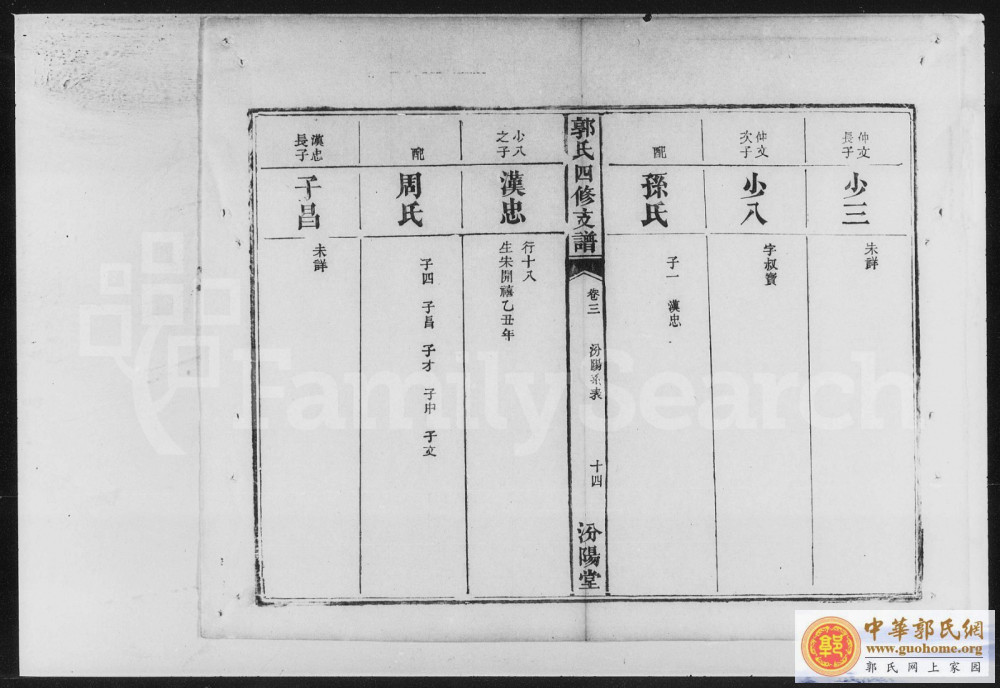 仲文長子
少三
未詳
仲文次子
少八
字叔寶
配
孫氏
子一 漢忠
郭氏四修支譜
卷三 汾陽系表 十四
汾陽堂
少八之子
漢忠
行十八
生宋開禧乙丑年
配
周氏
子四 子昌 子才 子中 子文
漢忠長子
子昌
未詳
FamilySearch
中華郭氏網
www.guohome.org
郭氏网上家园